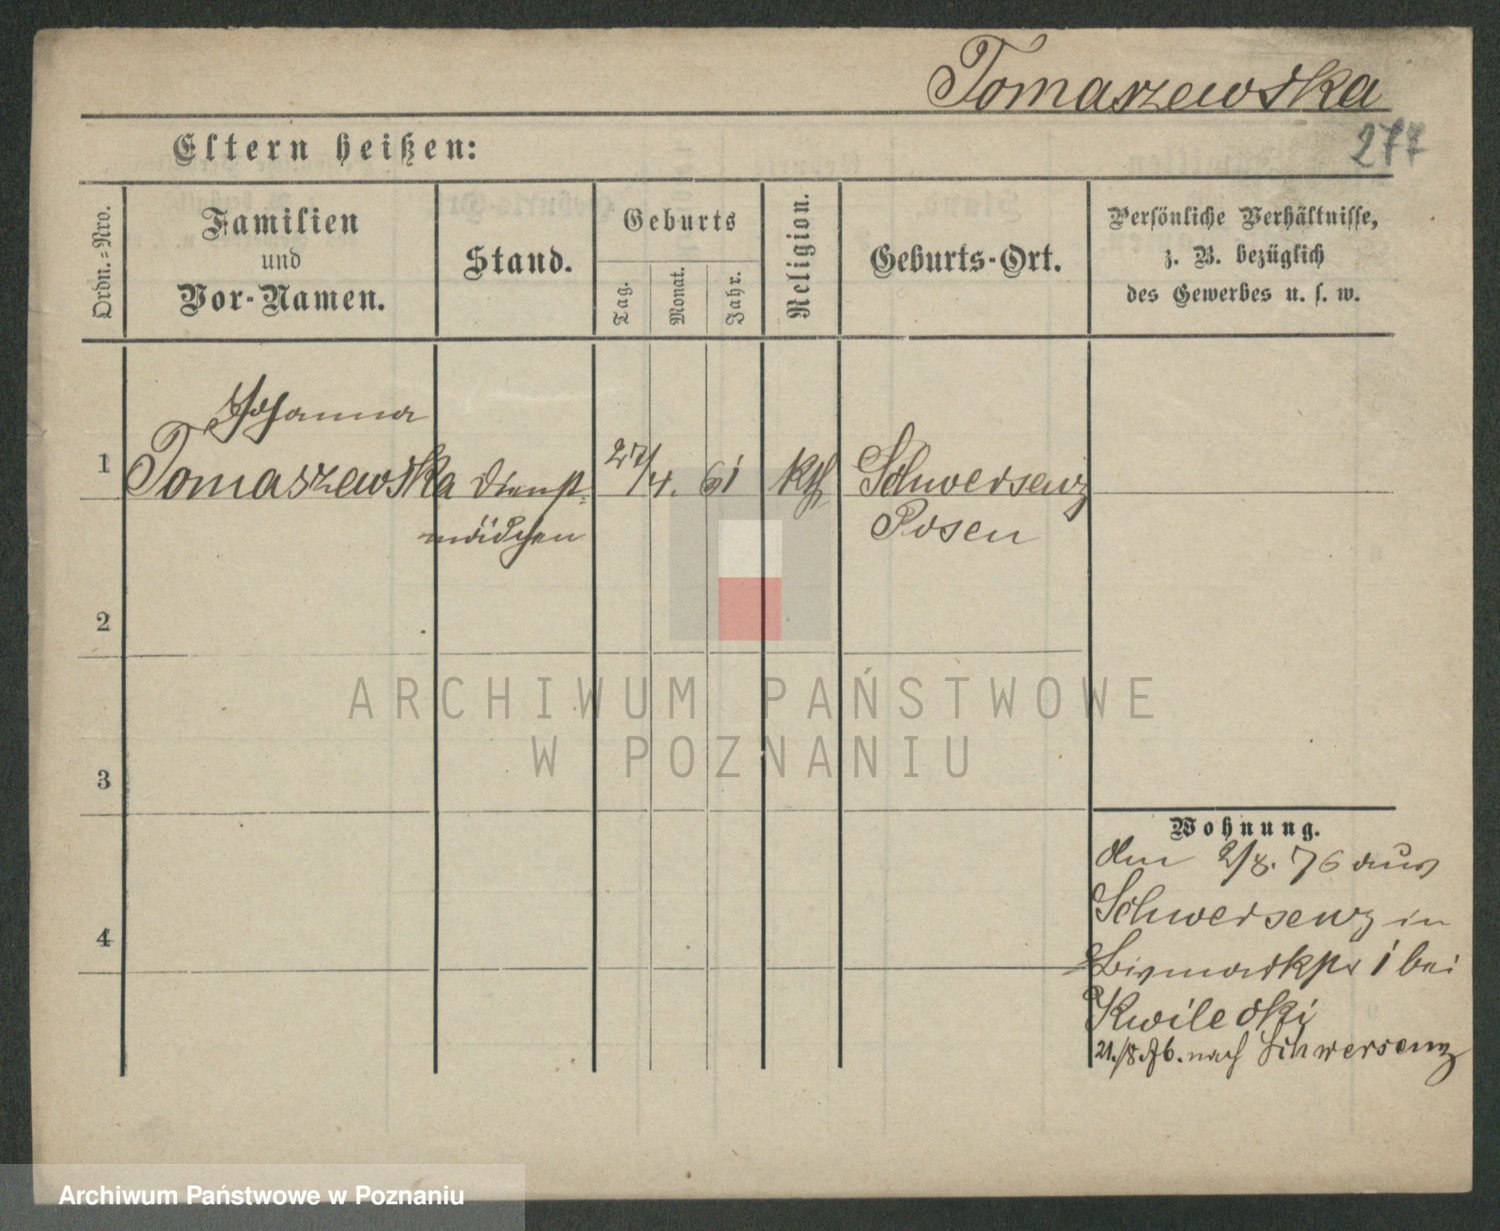 Tomaszewska
277
Eltern heißen:
Ordn.-Nro.
Familien
und
Vor-Namen.
Stand.
Geburts
Tag.
Monat.
Jahr.
Religion.
Geburts-Ort.
Persönliche Verhältnisse,
z. B. bezüglich
des Gewerbes u. s. w.
Johanna
1 Tomaszewska Dienst- 27/4. 61 kth Schwersenz
mädchen Posen
2
3
4
ARCHIWUM PAŃSTWOWE
W POZNANIU
Wohnung.
den 2/8. 76 aus
Schwersenz in
Bismarkstr 1 bei
Kwilecki
21./8.76. nach Schwersenz
Archiwum Państwowe w Poznaniu